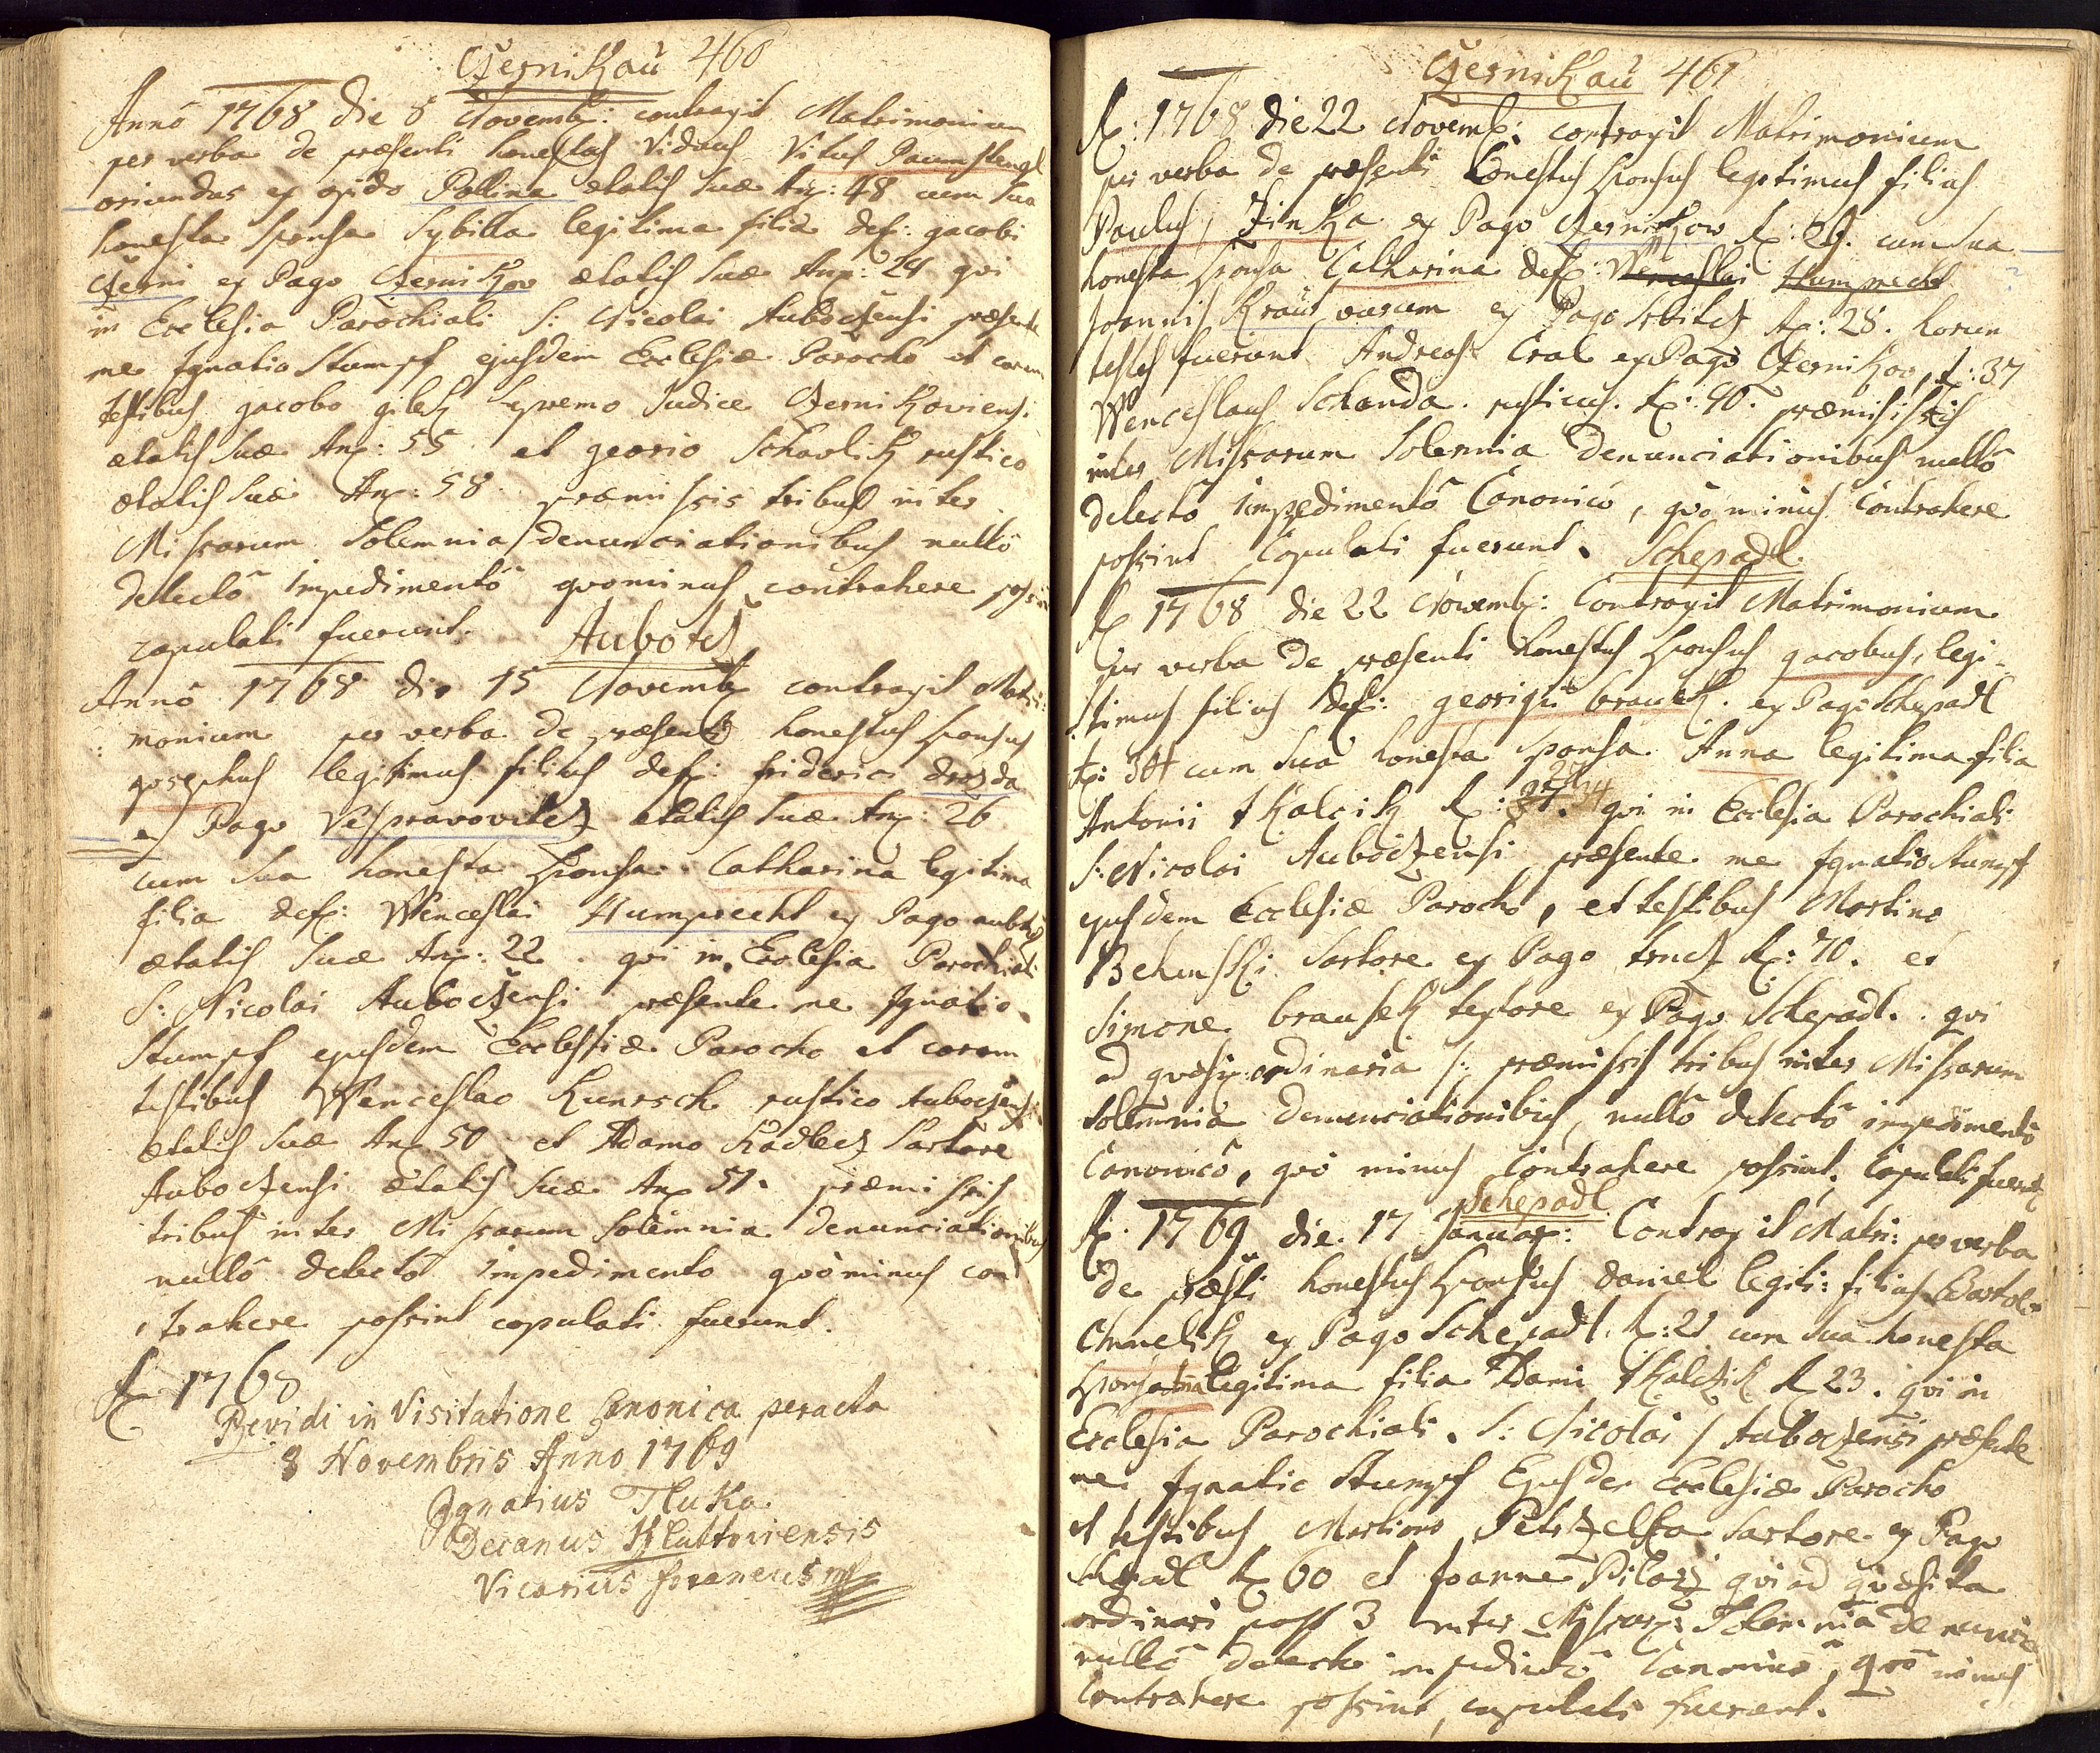 Czernikau 460
Anno 1768 die 8 Novemb: contraxit Matrimonium
per verba de præsenti honestus Viduus Vitus Paumstengl
oriundus ex opido Pollina ætatis suæ An: 48 cum sua
honesta sponsa Sybilla legitima filia def: jacobi
Czerni ex Pago Czernikov ætatis suæ An: 24 qvi
in Ecclesia Parochiali S: Nicolai Auboczensi præsente
me Ignatio Stumpf ejusdem Ecclesiæ Parocho et coram
testibus jacobo gilek supremo Judice Czernikoviensi
ætatis suæ An: 55 et georio Schavlik rustico
ætatis suæ An: 58. præmissis tribus inter
Missarum Solemnia denunciationibus nullô
detectô impedimentô qvominus contrahere possint
copulati fuerunt. Aubocz
Annô 1768 die 15 Novemb contraxit Matri:
monium per verba de præsenti honestus sponsus
josephus legitimus filius def: friderici drozda
ex Pago Vesprawovitcz ætatis suæ An: 26
cum sua honesta sponsa Catharina legitima
filia def: Wenceslai Humprecht ex Pago aubocz
ætatis suæ An: 22. qvi in Ecclesia Parochiali
S: Nicolai Auboczensi præsente me Ignatio
Stumpf ejusdem Ecclessiæ Parocho et coram
testibus Wenceslao Kunesch rustico Auboczensi
ætatis suæ An 50 et Adamo Kadlecz Sartore
Auboczensi ætatis suæ An 51. præmissis
tribus inter Missarum Solemnia denunciationibus
nullô detectô impedimento qvôminus con
trahere possint copulati fuerunt.
A 1768
Revidi in Visitatione Canonica peracta
8 Novembris Anno 1769
Ignatius Tluka
Decanus Klattoviensis
Vicarius foraneus mp
Czernikau 461
A: 1768 die 22 Novemb: contraxit Matrimonium
per verba de præsenti honestus sponsus legitimus filius
Paulus, Zinka ex Pago Czernikow A: 29. cum sua
honesta sponsa Catharina def: Wenceslai Humprecht
Joannis Kraus varum ex Pago Srbitcz A: 28. horum
testes fuerunt Andreas Cral ex Pago Czernikov, A: 37
Wenceslaus Schanda. rusticus. A: 40. præmissis tris
inter Missarum Solemnia denunciationibus nullô
detectô impedimentô Canonicô, qvô minus Contrahere
possint Copulati fuerunt. Schepadl
A 1768 die 22 Novemb: Contraxit Matrimonium
per verba de præsenti honestus sponsus jacobus, legi-
timus filius def: georigii brausek. ex Pago Schepadl
A: 30 cum sua honesta sponsa Anna legitima filia
Antonii tkalcik A: 24. qvi in Ecclesia Parochiali
S: Nicolai Auboczensi præsente me Ignatio Stumpf
ejusdem Ecclesiæ Parocho, et testibus Martino
Behenski Sartore ex Pago trncz A: 70. et
Simone brausek textore ex Pago Schepadl. qvi
ad qvæsi: ordinaria /: præmissis tribus inter Missarum
Solemnia denunciationibus, nullô detectô impedimentô
Canonicô, qvô minus Contrahere possint, Copulati fuerunt
Schepadl
A. 1769 die. 17 Januar: Contraxit Matri: per verba
de præsti honestus sponsus Daniel legiti: filius Bartol
Chmelik ex Pago Schepadl. A: 21 cum sua honesta
sponsa legitima filia Dami tkalczik A 23. qvi in
Ecclesia Parochiali. S: Nicolai / Auboczensi præsente
me Ignatio Stumpf Ejusdem Ecclesiæ Parocho
et testibus Martino Petrzelka Sartore ex Pago
Schepadl A 60 et Joanne Pilarz qvi ad qvæsita
ordinari post 3 inter Missar: Solemnia denuncia
nullô detecto impedimtô Canonico, qvô minus
Contrahere possint, copulati fuerunt.